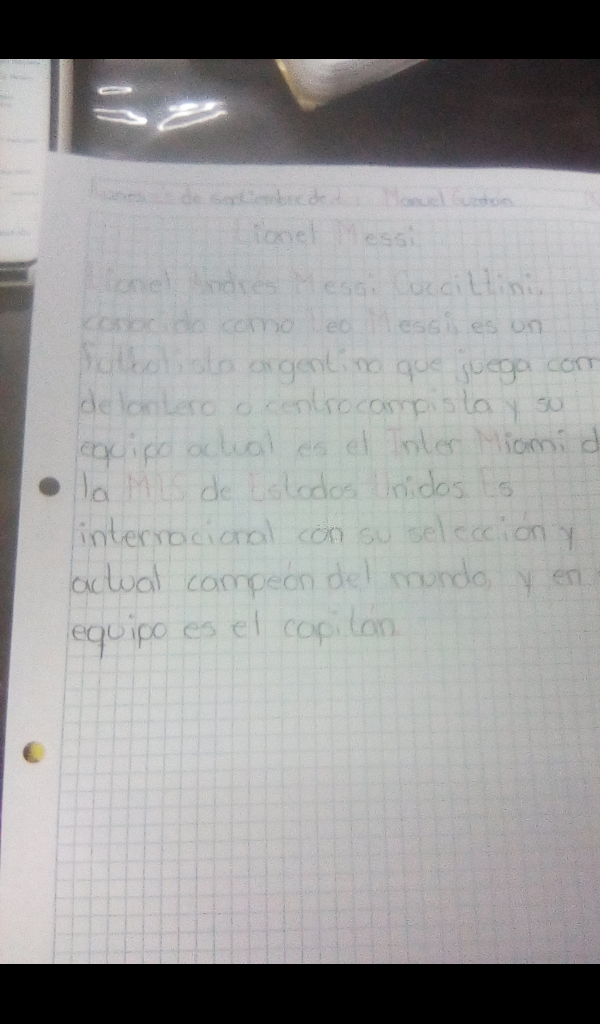 Lunes de septiembre de Manuel
Lionel Messi
Lionel Andrés Messi Cuccittini,
conocido como Leo Messi, es un
futbolista argentino que juega com
delantero o centrocampista y su
equipo actual es el Inter Miami d
la MLS de Estados Unidos. Es
internacional con su selección y
actual campeón del mundo, y en
equipo es el capitán